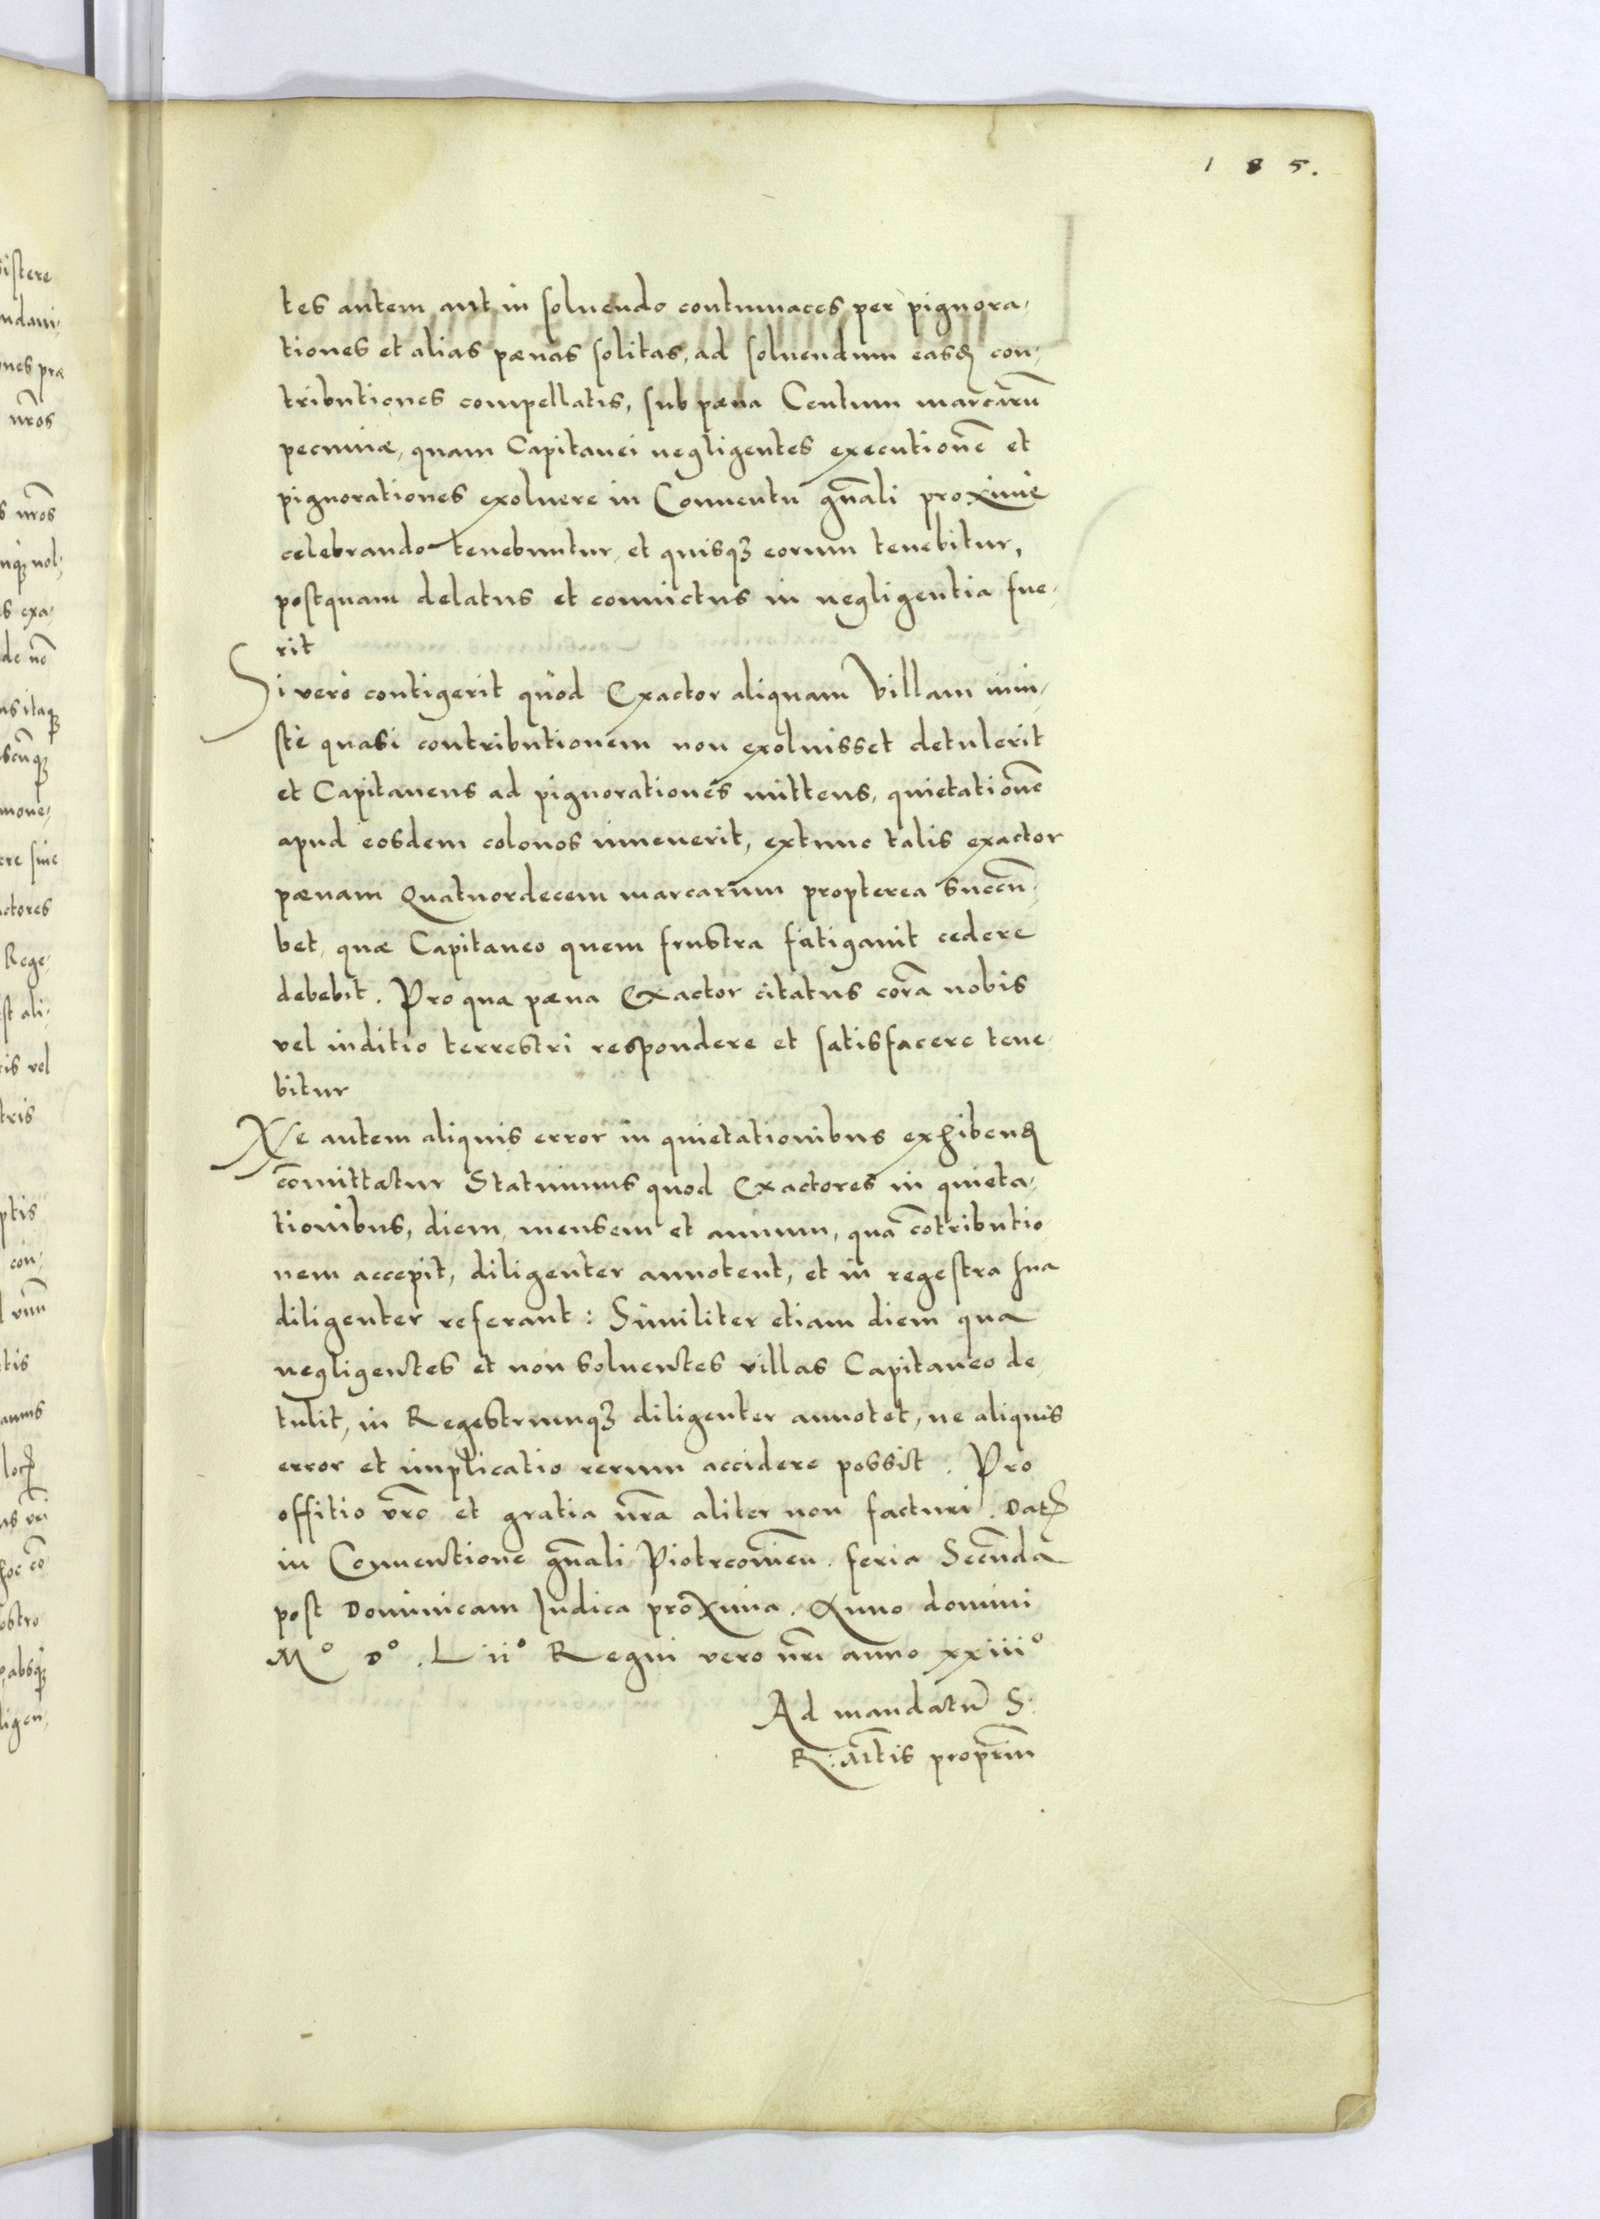 185.
tes autem aut in soluendo contumaces per pignora-
tiones et alias pænas solitas, ad soluendum easdem con-
tributiones compellatis, sub pæna Centum marcarũ
pecuniæ, quam Capitanei negligentes executionẽ et
pignorationes exoluere in Conuentu gñali proximè
celebrando tenebuntur, et quisqꝫ eorum tenebitur,
postquam delatus et conuictus in negligentia fue-
rit
Si verò contigerit quòd Exactor aliquam Villam iniu-
stè quasi contributionem non exoluisset detulerit
et Capitaneus ad pignorationes mittens, quietationẽ
apud eosdem colonos inuenerit, extunc talis exactor
pænam Quatuordecem marcarum propterea succũ-
bet, quæ Capitaneo quem frustra fatigauit cedere
debebit. Pro qua pæna Exactor citatus corã nobis
vel iuditio terrestri respondere et satisfacere tene-
bitur
Ne autem aliquis error in quietationibus exhibend
cõmittatur Statuimus quod Exactores in quieta-
tionibus, diem, mensem et annum, qua cõtributio-
nem accepit, diligenter annotent, et in regestra sua
diligenter referant: Similiter etiam diem qua
negligentes et non soluentes villas Capitaneo de-
tulit, in Regestrumqꝫ diligenter annotet, ne aliquis
error et implicatio rerum accidere possit. Pro
offitio vr̃o et gratia nr̃a aliter non facturi. Dat
in Conuentione gñali Piotrcouien. feria Secũda
post Dominicam Iudica proxima. Anno domini
Mº Dº. Liiº Regni vero nr̃i anno xxiiiº
Ad mandatũ S.
R: Mt̃is propriũ